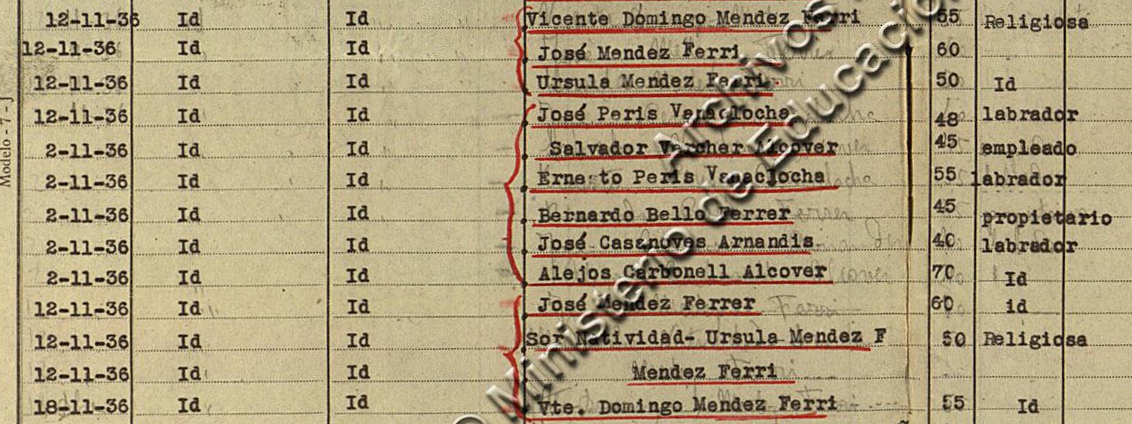 12-11-36 Id Id Vicente Domingo Mendez Ferri 55 Religiosa
12-11-36 Id Id José Mendez Ferri 60
12-11-36 Id Id Ursula Mendez Ferri 50 Id
12-11-36 Id Id José Peris Vanaclocha 48 labrador
2-11-36 Id Id Salvador Varcher Alcover 45 empleado
2-11-36 Id Id Ernesto Peris Vanaclocha 55 labrador
2-11-36 Id Id Bernardo Bello Ferrer 45 propietario
2-11-36 Id Id José Casanoves Arnandis 40 labrador
2-11-36 Id Id Alejos Carbonell Alcover 70 Id
12-11-36 Id Id José Mendez Ferrer 60 id
12-11-36 Id Id Sor Natividad- Ursula Mendez F 50 Religiosa
12-11-36 Id Id Mendez Ferri
18-11-36 Id Id Vte. Domingo Mendez Ferri 55 Id
Modelo - 7 -
Archivos
Ministerio de Educació